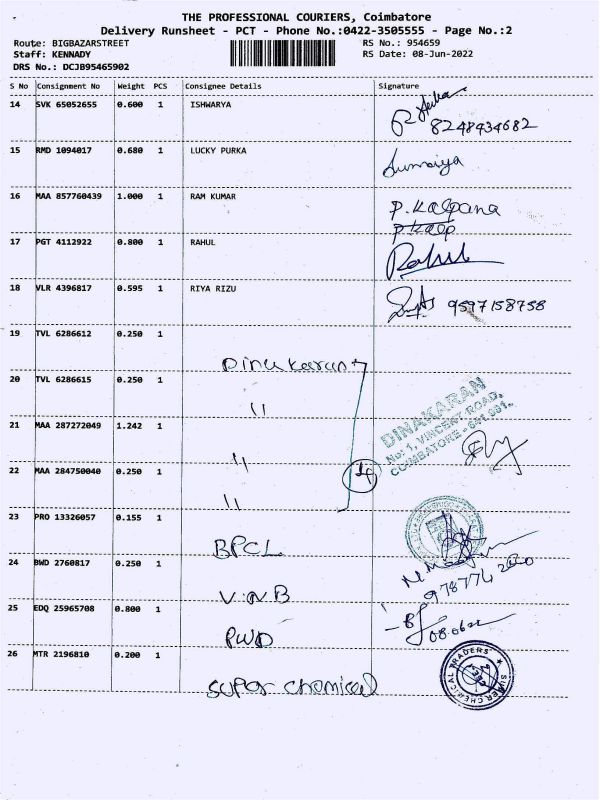 THE PROFESSIONAL COURIERS, Coimbatore
Delivery Runsheet - PCT - Phone No.:0422-3505555 - Page No.:2
Route: BIGBAZARSTREET
Staff: KENNADY
DRS No.: DCJB95465902
RS No.: 954659
RS Date: 08-Jun-2022
S No Consignment No Weight PCS Consignee Details Signature
14 SVK 65052655 0.600 1 ISHWARYA
8248434682
15 RMD 1094017 0.680 1 LUCKY PURKA
Sumaiya
16 MAA 857760439 1.000 1 RAM KUMAR
P.Kalpana
17 PGT 4112922 0.800 1 RAHUL
Rahul
18 VLR 4396817 0.595 1 RIYA RIZU
9597158758
19 TVL 6286612 0.250 1
Dinakaran
20 TVL 6286615 0.250 1
"
21 MAA 287272049 1.242 1
"
22 MAA 284750040 0.250 1
"
4
DINAKARAN
No: 1, VINCENT ROAD,
COIMBATORE - 641 001.
23 PRO 13326057 0.155 1
BPCL
24 BWD 2760817 0.250 1
V.N.B
25 EDQ 25965708 0.800 1
PWD
26 MTR 2196810 0.200 1
Super chemical
SUPER CHEMICAL TRADERS